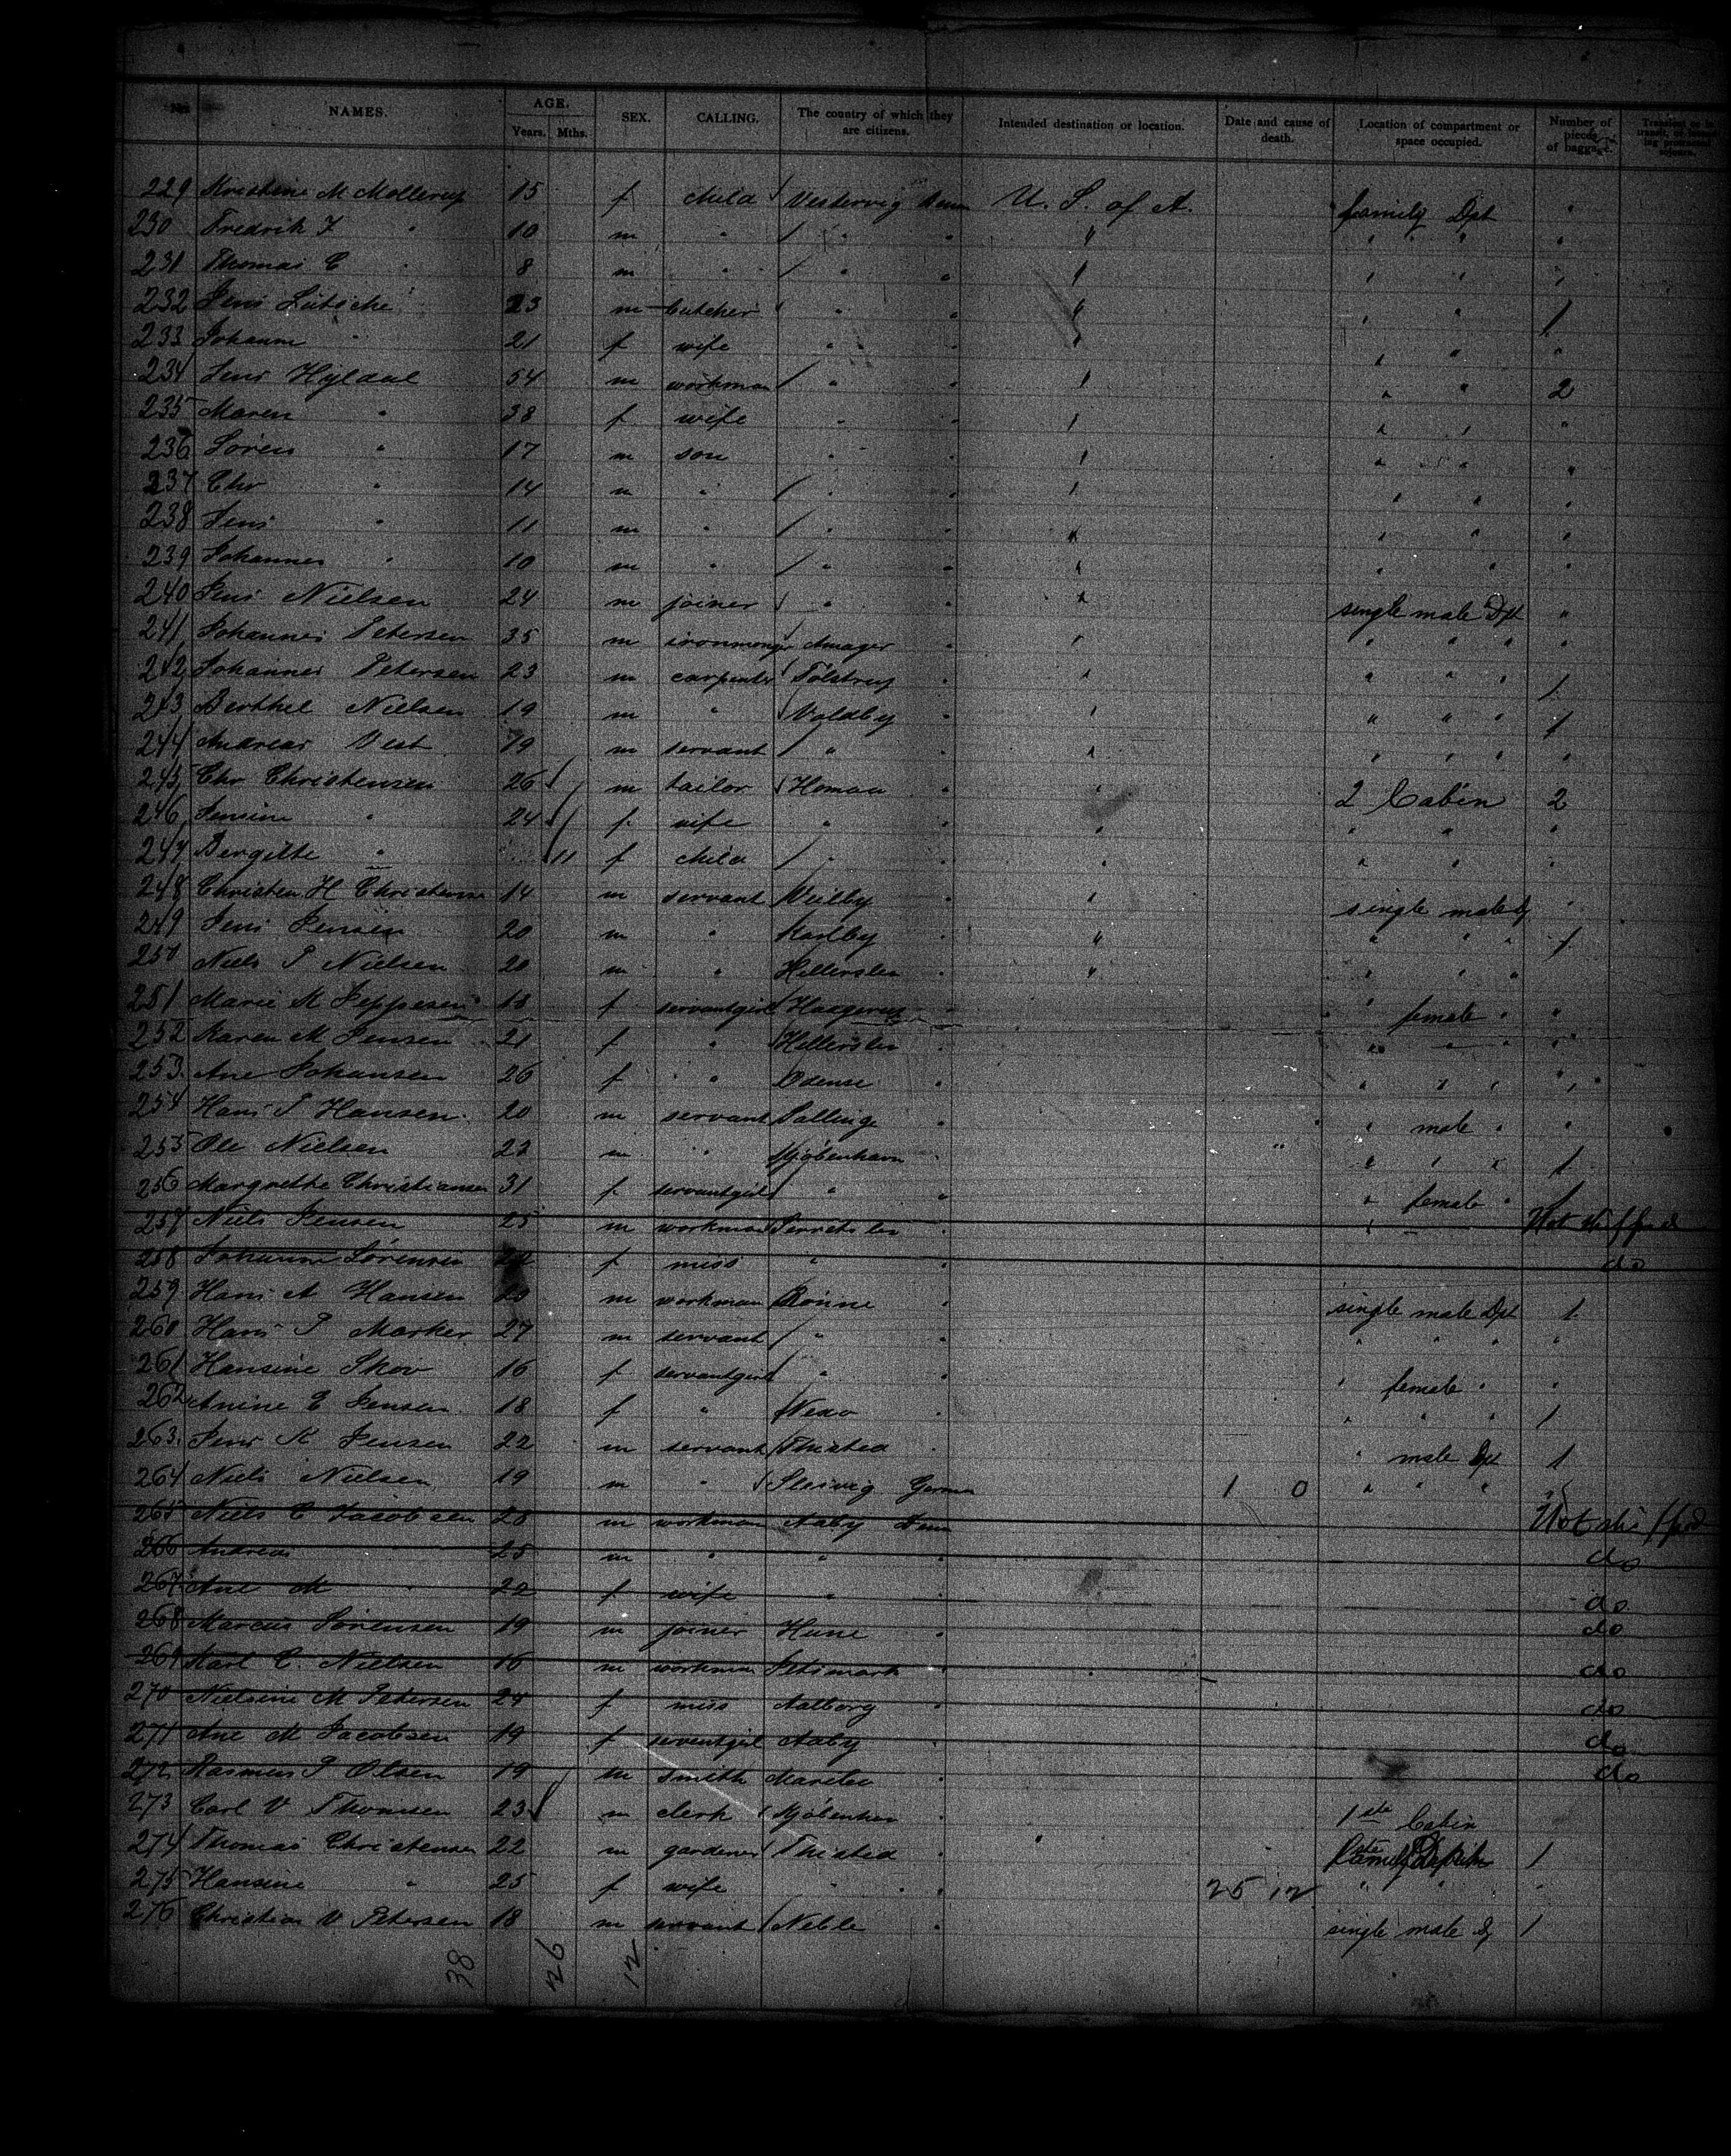 No. NAMES. AGE. Years. Mths. SEX. CALLING. The country of which they are citizens. Intended destination or location. Date and cause of death. Location of compartment or space occupied. Number of pieces of baggage. Transient or in transit, or intending protracted sojourn.
229 Kirstine M Mollerup 15 f child Vestervig Denm U. S. of A. family Dpt "
230 Fredrik J " 10 m " " " " " " "
231 Thomas C " 8 m " " " " " " "
232 Jens Lutsche 23 m butcher " " " " " 1
233 Johanne " 21 f wife " " " " " "
234 Jens Hyldal 54 m workman " " " " " 2
235 Maren " 38 f wife " " " " " "
236 Soren " 17 m son " " " " " "
237 Chr " 14 m " " " " " " "
238 Jens " 11 m " " " " " " "
239 Johannes " 10 m " " " " " " "
240 Jens Nielsen 24 m joiner " " " single male Dpt "
241 Johannes Petersen 35 m ironmonger Amager " " " " " "
242 Johannes Petersen 23 m carpenter Tolstrup " " " " " 1
243 Berthel Nielsen 19 m " Voldby " " " " " 1
244 Andreas Vest 19 m servant " " " " " " "
245 Chr Christensen 26 m tailor Homaa " " 2 Cabin 2
246 Jensine " 24 f wife " " " " " "
247 Bergitte " 11 f child " " " " " "
248 Christen H Christensen 14 m servant Veilby " " single male D "
249 Jens Jensen 20 m " Karlby " " " " 1
250 Niels P Nielsen 20 m " Hillerslev " " " " "
251 Marie M Jeppesen 18 f servantgirl Haagerup " " female " "
252 Karen M Jensen 21 f " Hillerslev " " " " "
253 Ane Johansen 26 f " Odense " " " " "
254 Hans P Hansen 20 m servant Sallinge " " male " "
255 Ole Nielsen 22 m " Kjøbenhavn " " " " 1
256 Margrethe Christiansen 31 f servantgirl " " " female " 1
257 Niels Jensen 25 m workman " " Not shipped
258 Johanne Sørensen 22 f miss " " do
259 Hans A Hansen 20 m workman Rönne " single male Dpt 1
260 Hans P Marker 27 m servant " " " " " "
261 Hansine Skov 16 f servantgirl " " " female " "
262 Anine E Jensen 18 f " Nexo " " " " 1
263 Jens K Jensen 22 m servant Thisted " " male Dpt 1
264 Niels Nielsen 19 m " Slesvig German 1 0 " " " "
265 Niels C Jacobsen 28 m workman Aaby Denm Not shipped
266 Andreas 25 m " " " do
267 Ane M " 22 f wife " " do
268 Marcus Sorensen 19 m joiner Hune " do
269 Karl C. Nielsen 16 m workman Jetsmark " do
270 Nielsine M Petersen 24 f miss Aalborg " do
271 Ane M Jacobsen 19 f servantgirl Aaby " do
272 Rasmus P Olsen 19 m smith " do
273 Carl V Thomsen 23 m clerk Kjøbenhavn " 1ste Cabin
274 Thomas Christensen 22 m gardener Thisted " family 1
275 Hansine " 25 f wife " " 25 12 " " "
276 Christian V Petersen 18 m servant Neble " single male D 1
38 26 12